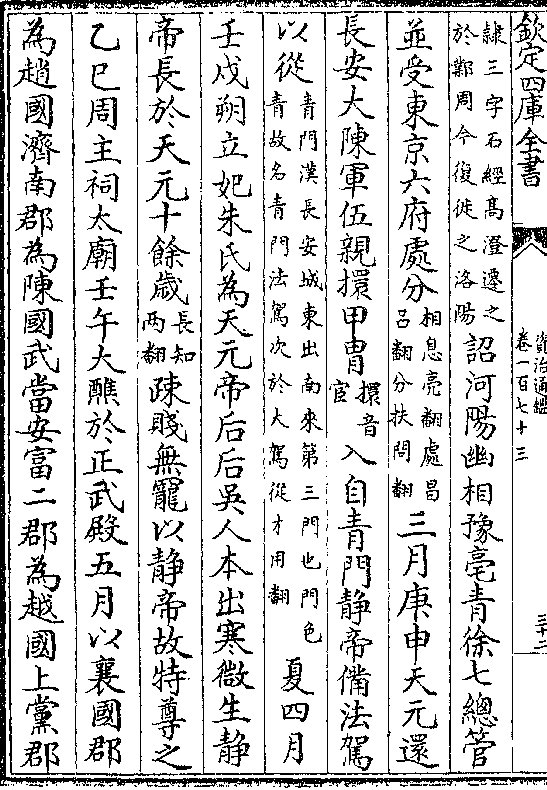 欽定四庫全書
資治通鑑
卷一百七十三
三十二
隸三字石經髙澄遷之
於鄴周今復徙之洛陽
詔河陽幽相豫亳青徐七總管
並受東京六府處分
相息亮翻處昌
呂翻分扶問翻
三月庚申天元還
長安大陳軍伍親擐甲胄
擐音
宦
入自青門静帝備法駕
以從
青門漢長安城東出南來第三門也門色
青故名青門法駕次於大駕從才用翻
夏四月
壬戌朔立妃朱氏為天元帝后后吳人本出寒微生静
帝長於天元十餘歲
長知
两翻
疎賤無寵以静帝故特尊之
乙巳周主祠太廟壬午大醮於正武殿五月以襄國郡
為趙國濟南郡為陳國武當安富二郡為越國上黨郡